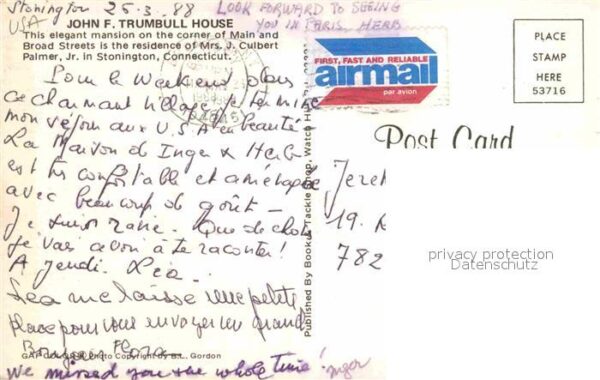 Stonington 25-3-88
USA
LOOK FORWARD TO SEEING
YOU IN PARIS. HERB
JOHN F. TRUMBULL HOUSE
This elegant mansion on the corner of Main and
Broad Streets is the residence of Mrs. J. Culbert
Palmer, Jr. in Stonington, Connecticut.
Pour le weekend dans
ce charmant village je termine
mon séjour aux U.S.A en beauté
La Maison de Inger & Herb
est très confortable et aménagée
avec beaucoup de goût -
Je suis ravie. Que de choses
je vais avoir à te raconter!
A jeudi. Léa
Léa me laisse une petite
place pour vous envoyer un grand
Bonjour Flora
We missed you the whole time! Inger
Photo Copyright by B.L. Gordon
Published By Book & Tackle Shop, Watch Hill
FIRST, FAST AND RELIABLE
airmail
par avion
PLACE
STAMP
HERE
53716
Post Card
19.
782
privacy protection
Datenschutz